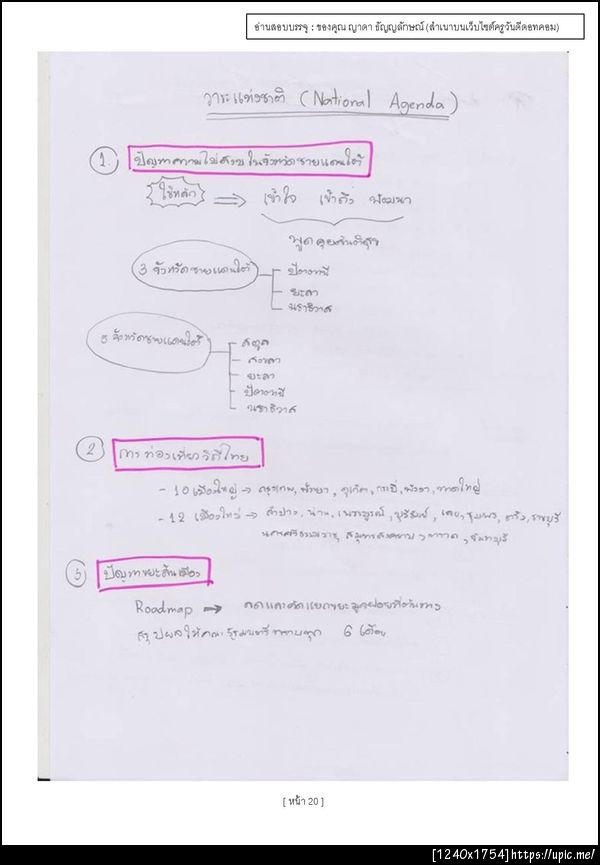 อ่านสอบบรรจุ : ของคุณ ญาดา ธัญญลักษณ์ (สำเนาบนเว็บไซต์ครูวันดีดอทคอม)
วาระแห่งชาติ (National Agenda)
1. ปัญหาความไม่สงบในจังหวัดชายแดนใต้
ใช้หลัก ⇒ เข้าใจ เข้าถึง พัฒนา
พูดคุยสันติสุข
3 จังหวัดชายแดนใต้
ปัตตานี
ยะลา
นราธิวาส
5 จังหวัดชายแดนใต้
สตูล
สงขลา
ยะลา
ปัตตานี
นราธิวาส
2 การท่องเที่ยววิถีไทย
- 10 เมืองใหญ่ → กรุงเทพ, พัทยา, ภูเก็ต, กระบี่, พังงา, หาดใหญ่
- 12 เมืองใหม่ → ลำปาง, น่าน, เพชรบูรณ์, บุรีรัมย์, เลย, ชุมพร, ตรัง, ราชบุรี
นครศรีธรรมราช, สมุทรสงคราม, ตราด, จันทบุรี
3 ปัญหาขยะล้นเมือง
Roadmap → ลดและคัดแยกขยะมูลฝอยที่ต้นทาง
สรุปผลให้คณะรัฐมนตรีทราบทุก 6 เดือน
[ หน้า 20 ]
[1240x1754]https://upic.me/